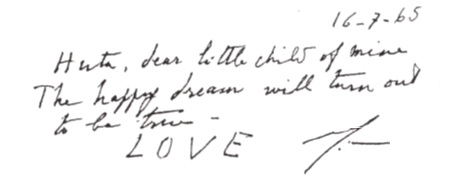 16-7-65
Huta, dear little child of mine
The happy dream will turn out
to be true -
LOVE